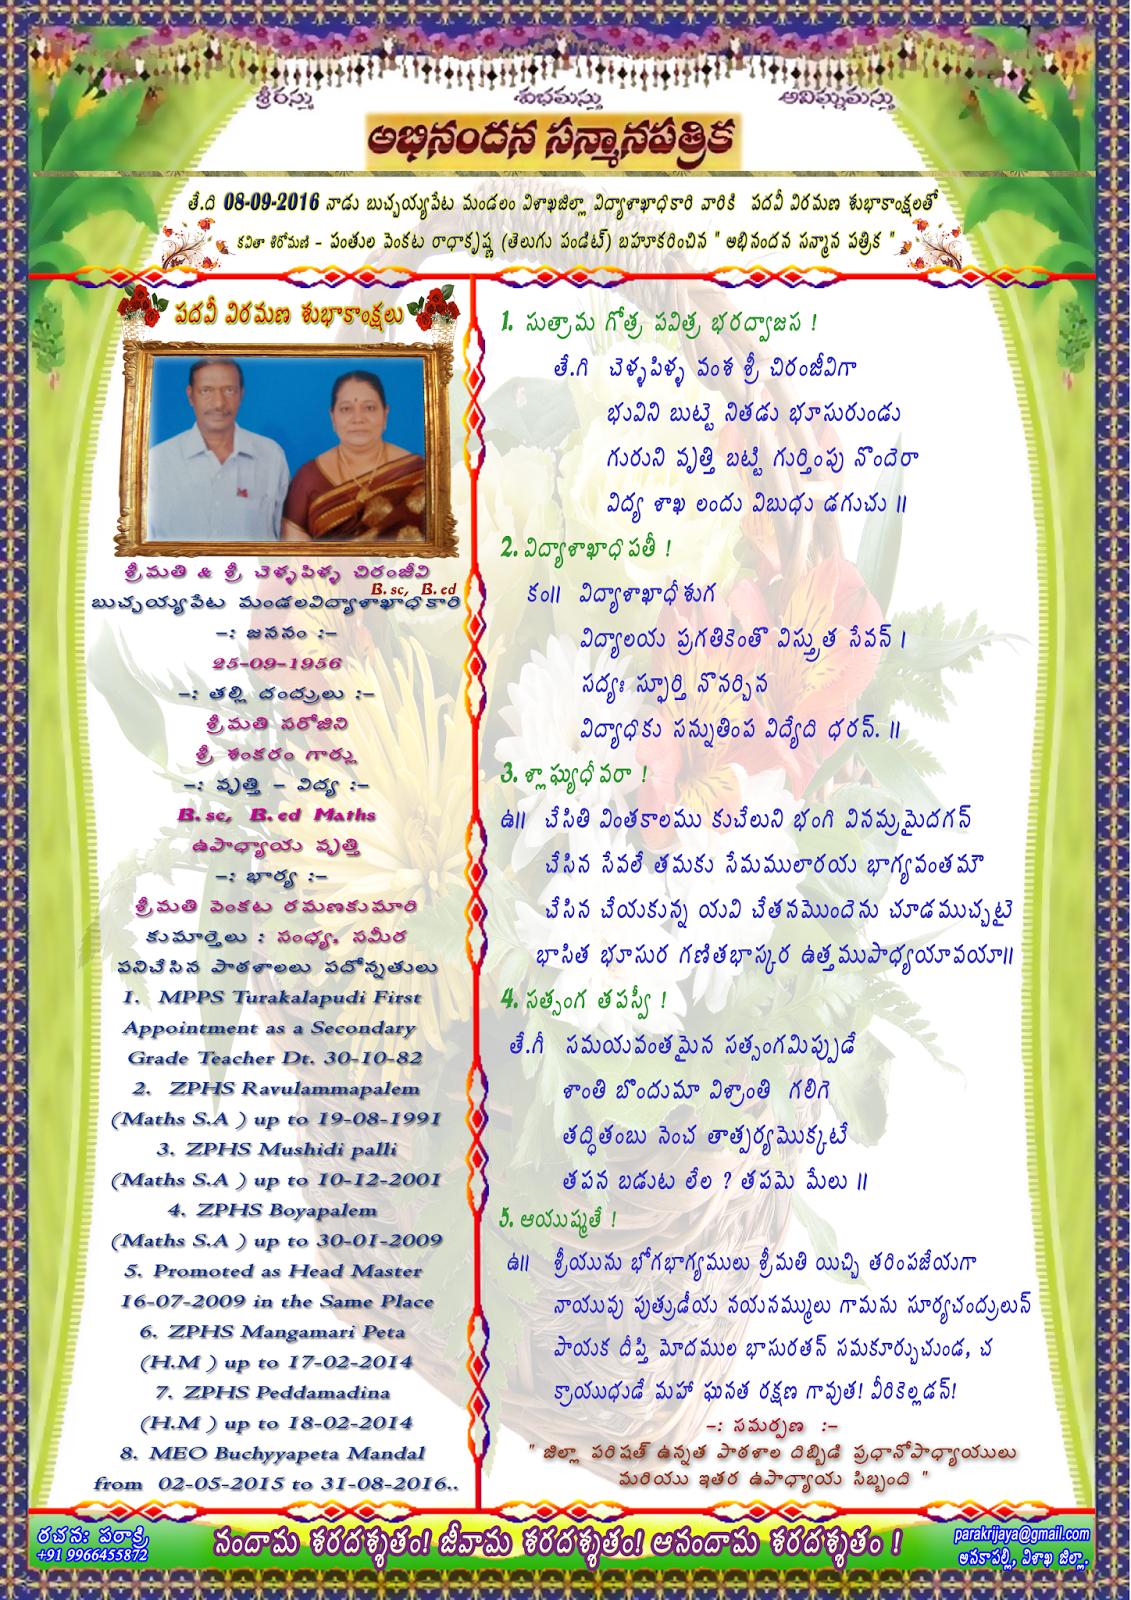 శ్రీరస్తు శుభమస్తు అవిఘ్నమస్తు
అభినందన సన్మానపత్రిక
తే.ది 08-09-2016 నాడు బుచ్చయ్యపేట మండలం విశాఖజిల్లా విద్యాశాఖాధికారి వారికి పదవీ విరమణ శుభాకాంక్షలతో
కవితా శిరోమణి - పంతుల వెంకట రాధాకృష్ణ (తెలుగు పండిట్) బహూకరించిన " అభినందన సన్మాన పత్రిక "
పదవీ విరమణ శుభాకాంక్షలు
శ్రీమతి & శ్రీ చెళ్ళపిళ్ళ చిరంజీవి
B.sc, B.ed
బుచ్చయ్యపేట మండలవిద్యాశాఖాధికారి
-: జననం :-
25-09-1956
-: తల్లి దండ్రులు :-
శ్రీమతి సరోజిని
శ్రీ శంకరం గార్లు
-: వృత్తి - విద్య :-
B.sc, B.ed Maths
ఉపాధ్యాయ వృత్తి
-: భార్య :-
శ్రీమతి వెంకట రమణకుమారి
కుమార్తెలు : సంధ్య, సమీర
పనిచేసిన పాఠశాలలు పదోన్నతులు
1. MPPS Turakalapudi First
Appointment as a Secondary
Grade Teacher Dt. 30-10-82
2. ZPHS Ravulammapalem
(Maths S.A ) up to 19-08-1991
3. ZPHS Mushidi palli
(Maths S.A ) up to 10-12-2001
4. ZPHS Boyapalem
(Maths S.A ) up to 30-01-2009
5. Promoted as Head Master
16-07-2009 in the Same Place
6. ZPHS Mangamari Peta
(H.M ) up to 17-02-2014
7. ZPHS Peddamadina
(H.M ) up to 18-02-2014
8. MEO Buchyyapeta Mandal
from 02-05-2015 to 31-08-2016..
1. సుత్రామ గోత్ర పవిత్ర భరద్వాజస !
తే.గి చెళ్ళపిళ్ళ వంశ శ్రీ చిరంజీవిగా
భువిని బుట్టె నితడు భూసురుండు
గురుని వృత్తి బట్టి గుర్తింపు నొందెరా
విద్య శాఖ లందు విబుధు డగుచు ॥
2. విద్యాశాఖాధిపతీ !
కం॥ విద్యాశాఖాధీశుగ
విద్యాలయ ప్రగతికెంతొ విస్తృత సేవన్ ।
సద్యః స్ఫూర్తి నొనర్చిన
విద్యాధికు సన్నుతింప విద్యేది ధరన్. ॥
3. శ్లాఘ్యధీవరా !
ఉ॥ చేసితి వింతకాలము కుచేలుని భంగి వినమ్రమైదగన్
చేసిన సేవలే తమకు సేమములారయ భాగ్యవంతమౌ
చేసిన చేయకున్న యవి చేతనమొందెను చూడముచ్చటై
భాసిత భూసుర గణితభాస్కర ఉత్తముపాధ్యయావయా॥
4. సత్సంగ తపస్వీ !
తే.గీ సమయవంతమైన సత్సంగమిప్పుడే
శాంతి బొందుమా విశ్రాంతి గలిగె
తద్ధితంబు నెంచ తాత్పర్యమొక్కటే
తపన బడుట లేల ? తపమె మేలు ॥
5. ఆయుష్మతే !
ఉ॥ శ్రీయును భోగభాగ్యములు శ్రీమతి యిచ్చి తరింపజేయగా
నాయువు పుత్రుడీయ నయనమ్ములు గామను సూర్యచంద్రులున్
పాయక దీప్తి మోదముల భాసురతన్ సమకూర్చుచుండ, చ
క్రాయుధుడే మహా ఘనత రక్షణ గావుత! వీరికెల్లడన్!
-: సమర్పణ :-
" జిల్లా పరిషత్ ఉన్నత పాఠశాల దిబ్బిడి ప్రధానోపాధ్యాయులు
మరియు ఇతర ఉపాధ్యాయ సిబ్బంది "
రచన: పరాక్రి
+91 9966455872
నందామ శరదశ్శతం! జీవామ శరదశ్శతం! ఆనందామ శరదశ్శతం !
parakrijaya@gmail.com
అనకాపల్లి, విశాఖ జిల్లా.